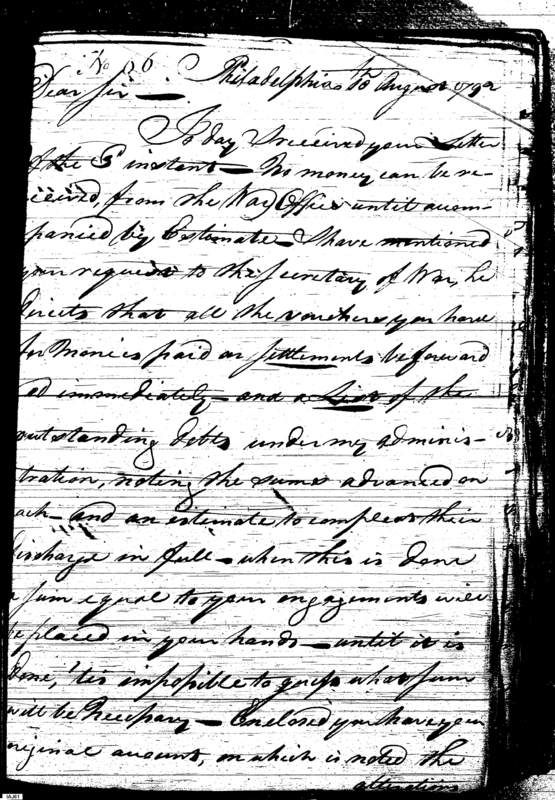 No 56
Philadelphia 10 August 1792
Dear Sir —
To day I received your Letter
of the 5th instant — No money can be re-
ceived, from the War Office until accom-
panied by Estimate — I have mentioned
your request to the Secretary of War, he
directs that all the vouchers you have
for Monies paid on Settlements be forward
ed immediately — and a List of the
outstanding debts under my adminis-
tration, noting the sums advanced on
each — and an estimate to compleat their
discharge in full — when this is done
a sum equal to your engagements will
be placed in your hands — until it is
done, 'tis impossible to guess what sum
will be Necessary — Enclosed you have your
original account, on which is noted the
alterations
IAJ61